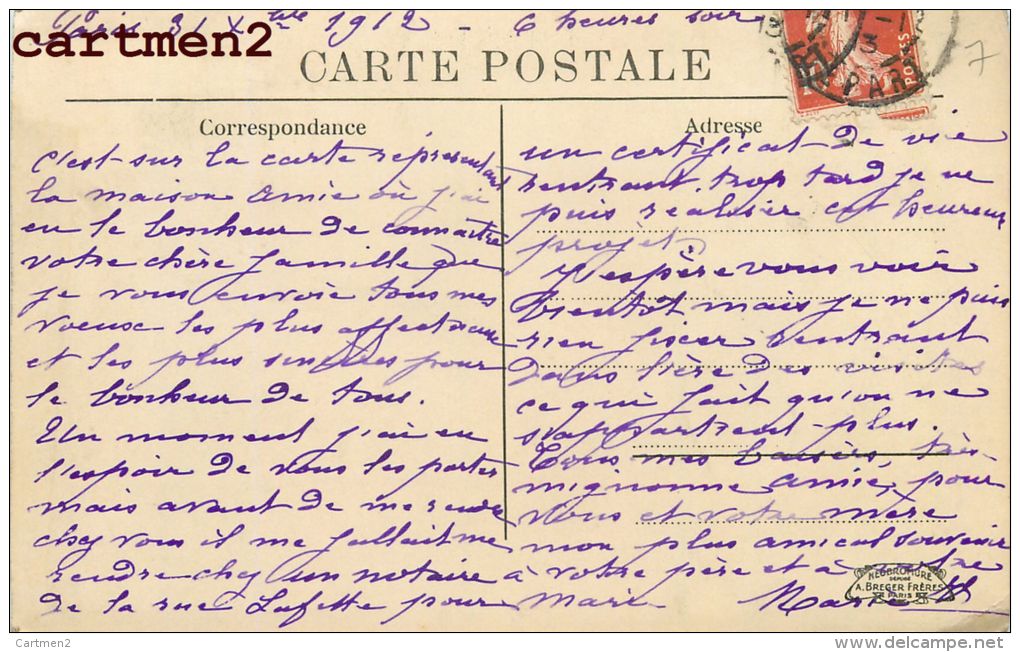 Paris 31 Xbre 1912 - 6 heures soir
cartmen2
CARTE POSTALE
7
PARIS
POSTES
Correspondance
c'est sur la carte représentant
la maison amie où j'ai
eu le bonheur de connaître
votre chère famille que
je vous envoie tous mes
voeux les plus affectueux
et les plus sincères pour
le bonheur de tous.
Un moment j'ai eu
l'espoir de vous les porter
mais avant de me rendre
chez vous il me fallait me
rendre chez un notaire
de la rue Lafette pour
Adresse
un certificat de vie
rentrant trop tard je ne
puis realiser cet heureux
projet.
J'espère vous voir
bientôt mais je ne puis
rien fixer rentrant
dans l'ère des visites
ce qui fait qu'on ne
s'appartient plus.
Tous mes baisers, très
mignonne amie, pour
vous et votre mère
mon plus amical souvenir
à votre père et à votre
mari Marie
NEOBROMURE
DÉPOSÉ
A. BREGER FRÈRES
PARIS
Cartmen2
www.delcampe.net